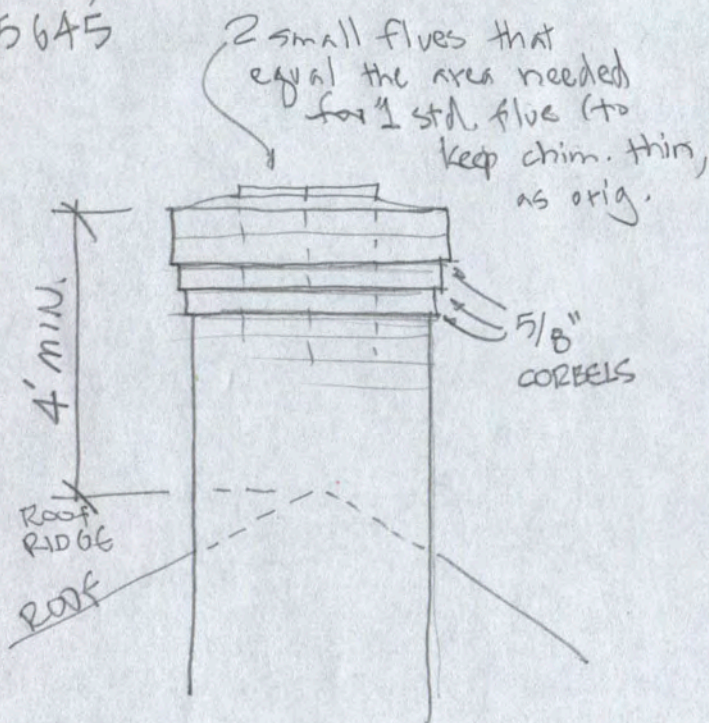 5645
2 small flues that
equal the area needed
for 1 std. flue (to
keep chim. thin,
as orig.
4' MIN.
5/8"
CORBELS
ROOF
RIDGE
ROOF